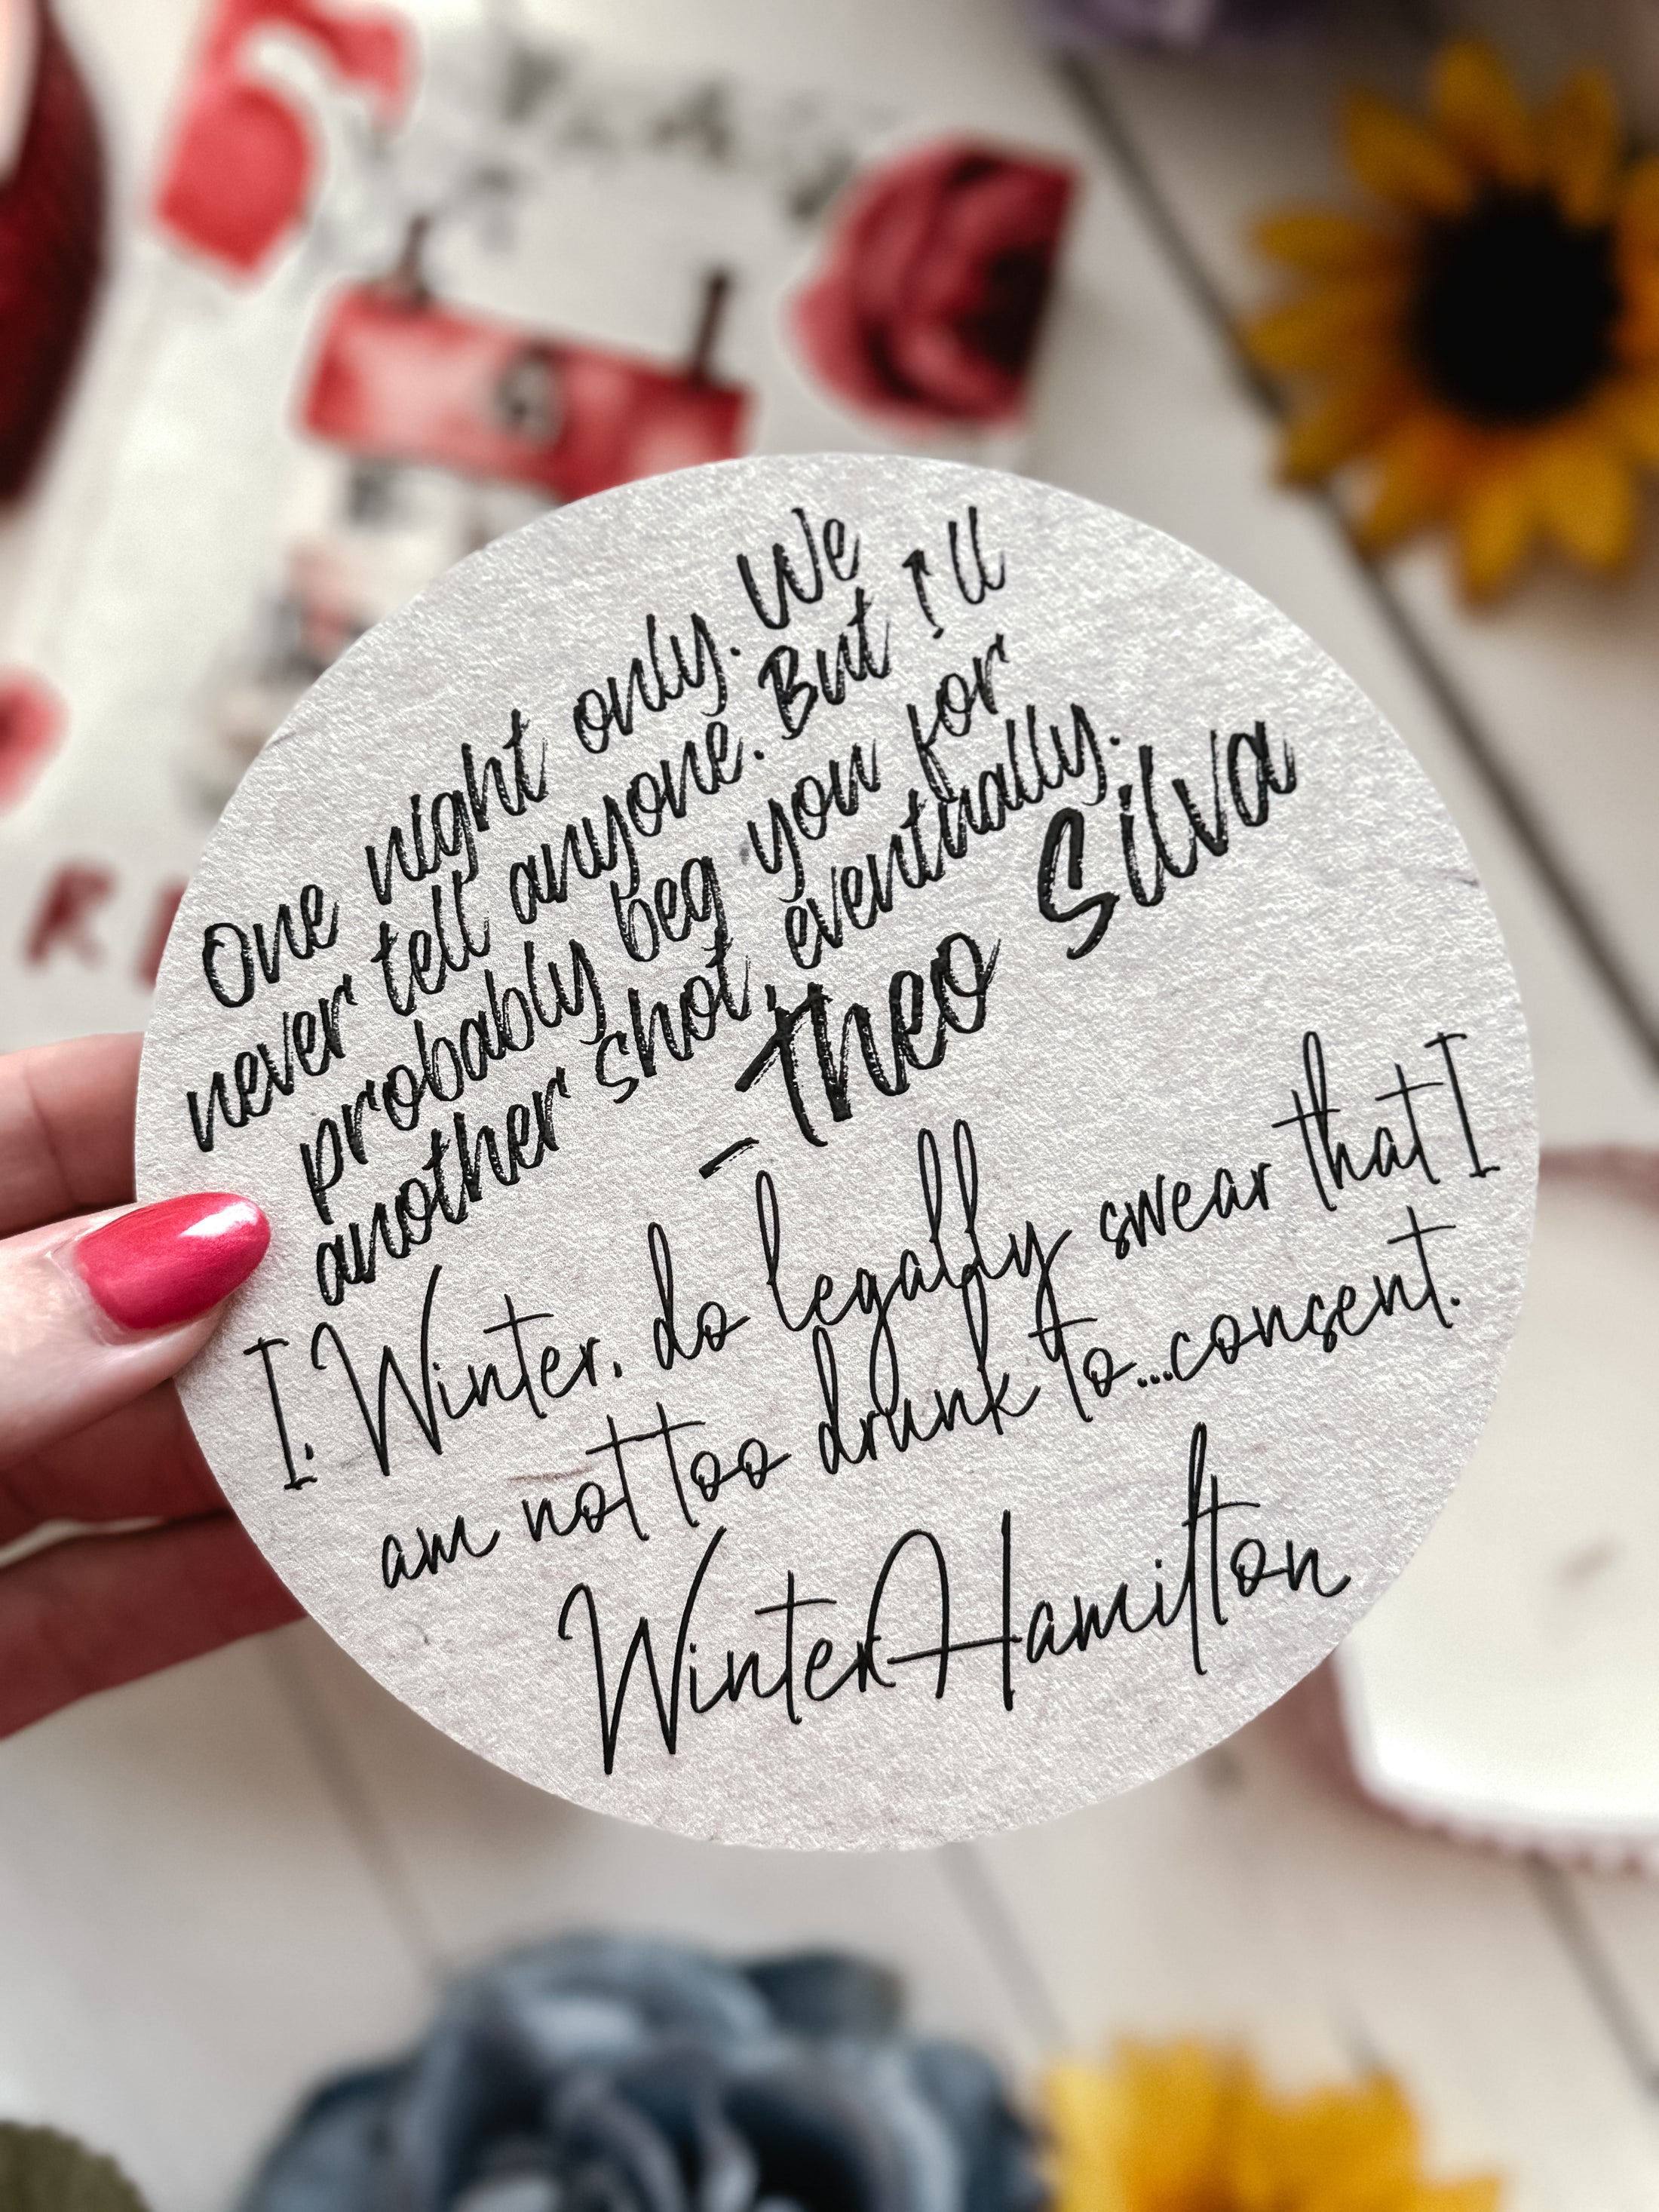 One night only. We
never tell anyone. But I'll
probably beg you for
another shot eventually.
- Theo Silva
I, Winter, do legally swear that I
am not too drunk to...consent.
Winter Hamilton